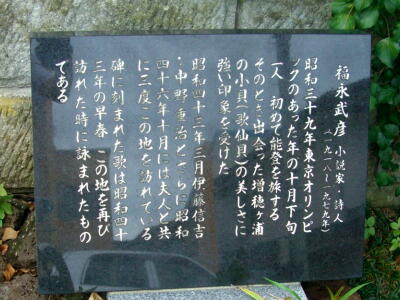 福永武彦 小説家・詩人
(一九一八~一九七九年)
昭和三十九年東京オリンピ
ックのあった年の十月下旬
一人 初めて能登を旅する
そのとき出会った増穂ヶ浦
の小貝(歌仙貝)の美しさに
強い印象を受けた
昭和四十三年三月伊藤信吉
・中野重治とさらに昭和
四十六年十月には夫人と共
に三度この地を訪れている
碑に刻まれた歌は昭和四十
三年の早春 この地を再び
訪れた時に詠まれたもの
である